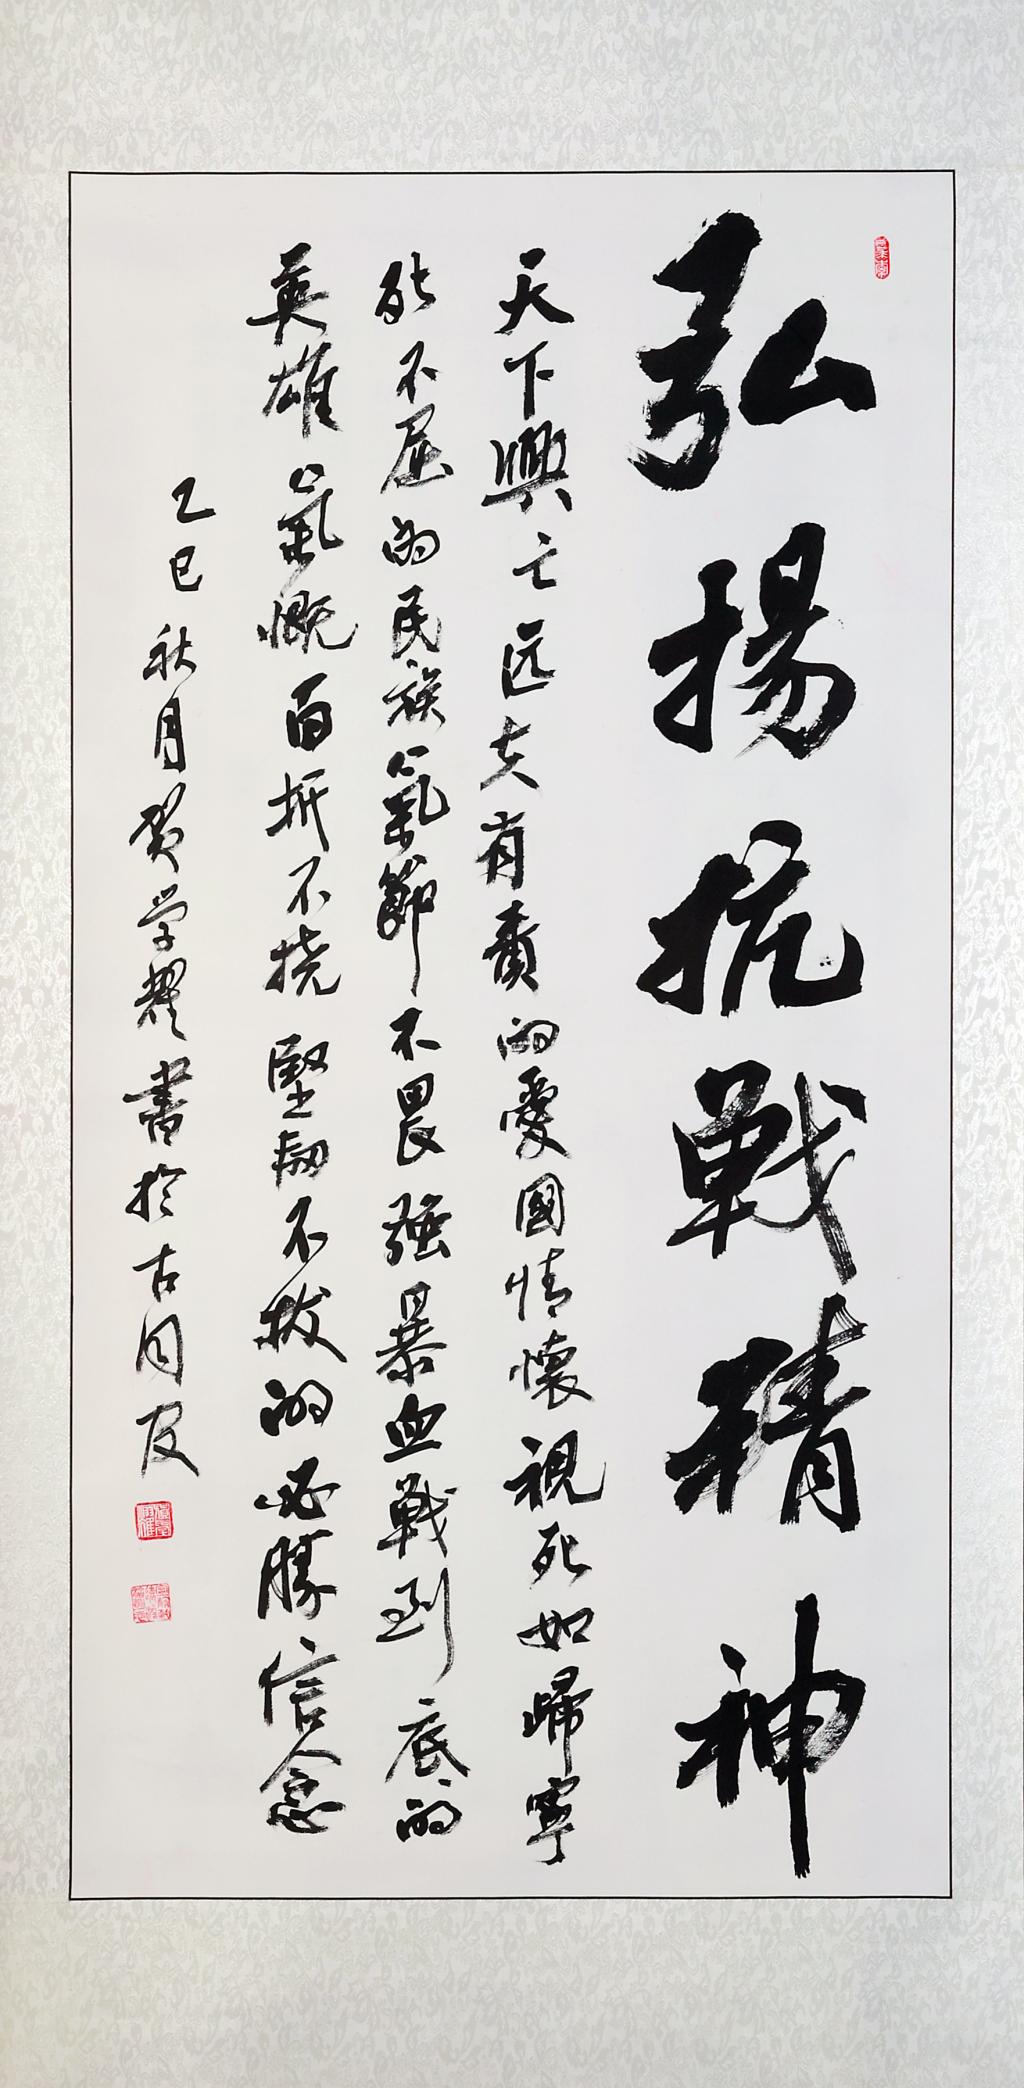 弘揚抗戰精神
天下興亡匹夫有責的愛國情懷視死如歸寧
死不屈的民族氣節不畏强暴血戰到底的
英雄氣慨百折不撓堅韧不拔的必勝信念
乙巳秋月賀学耀書於古月